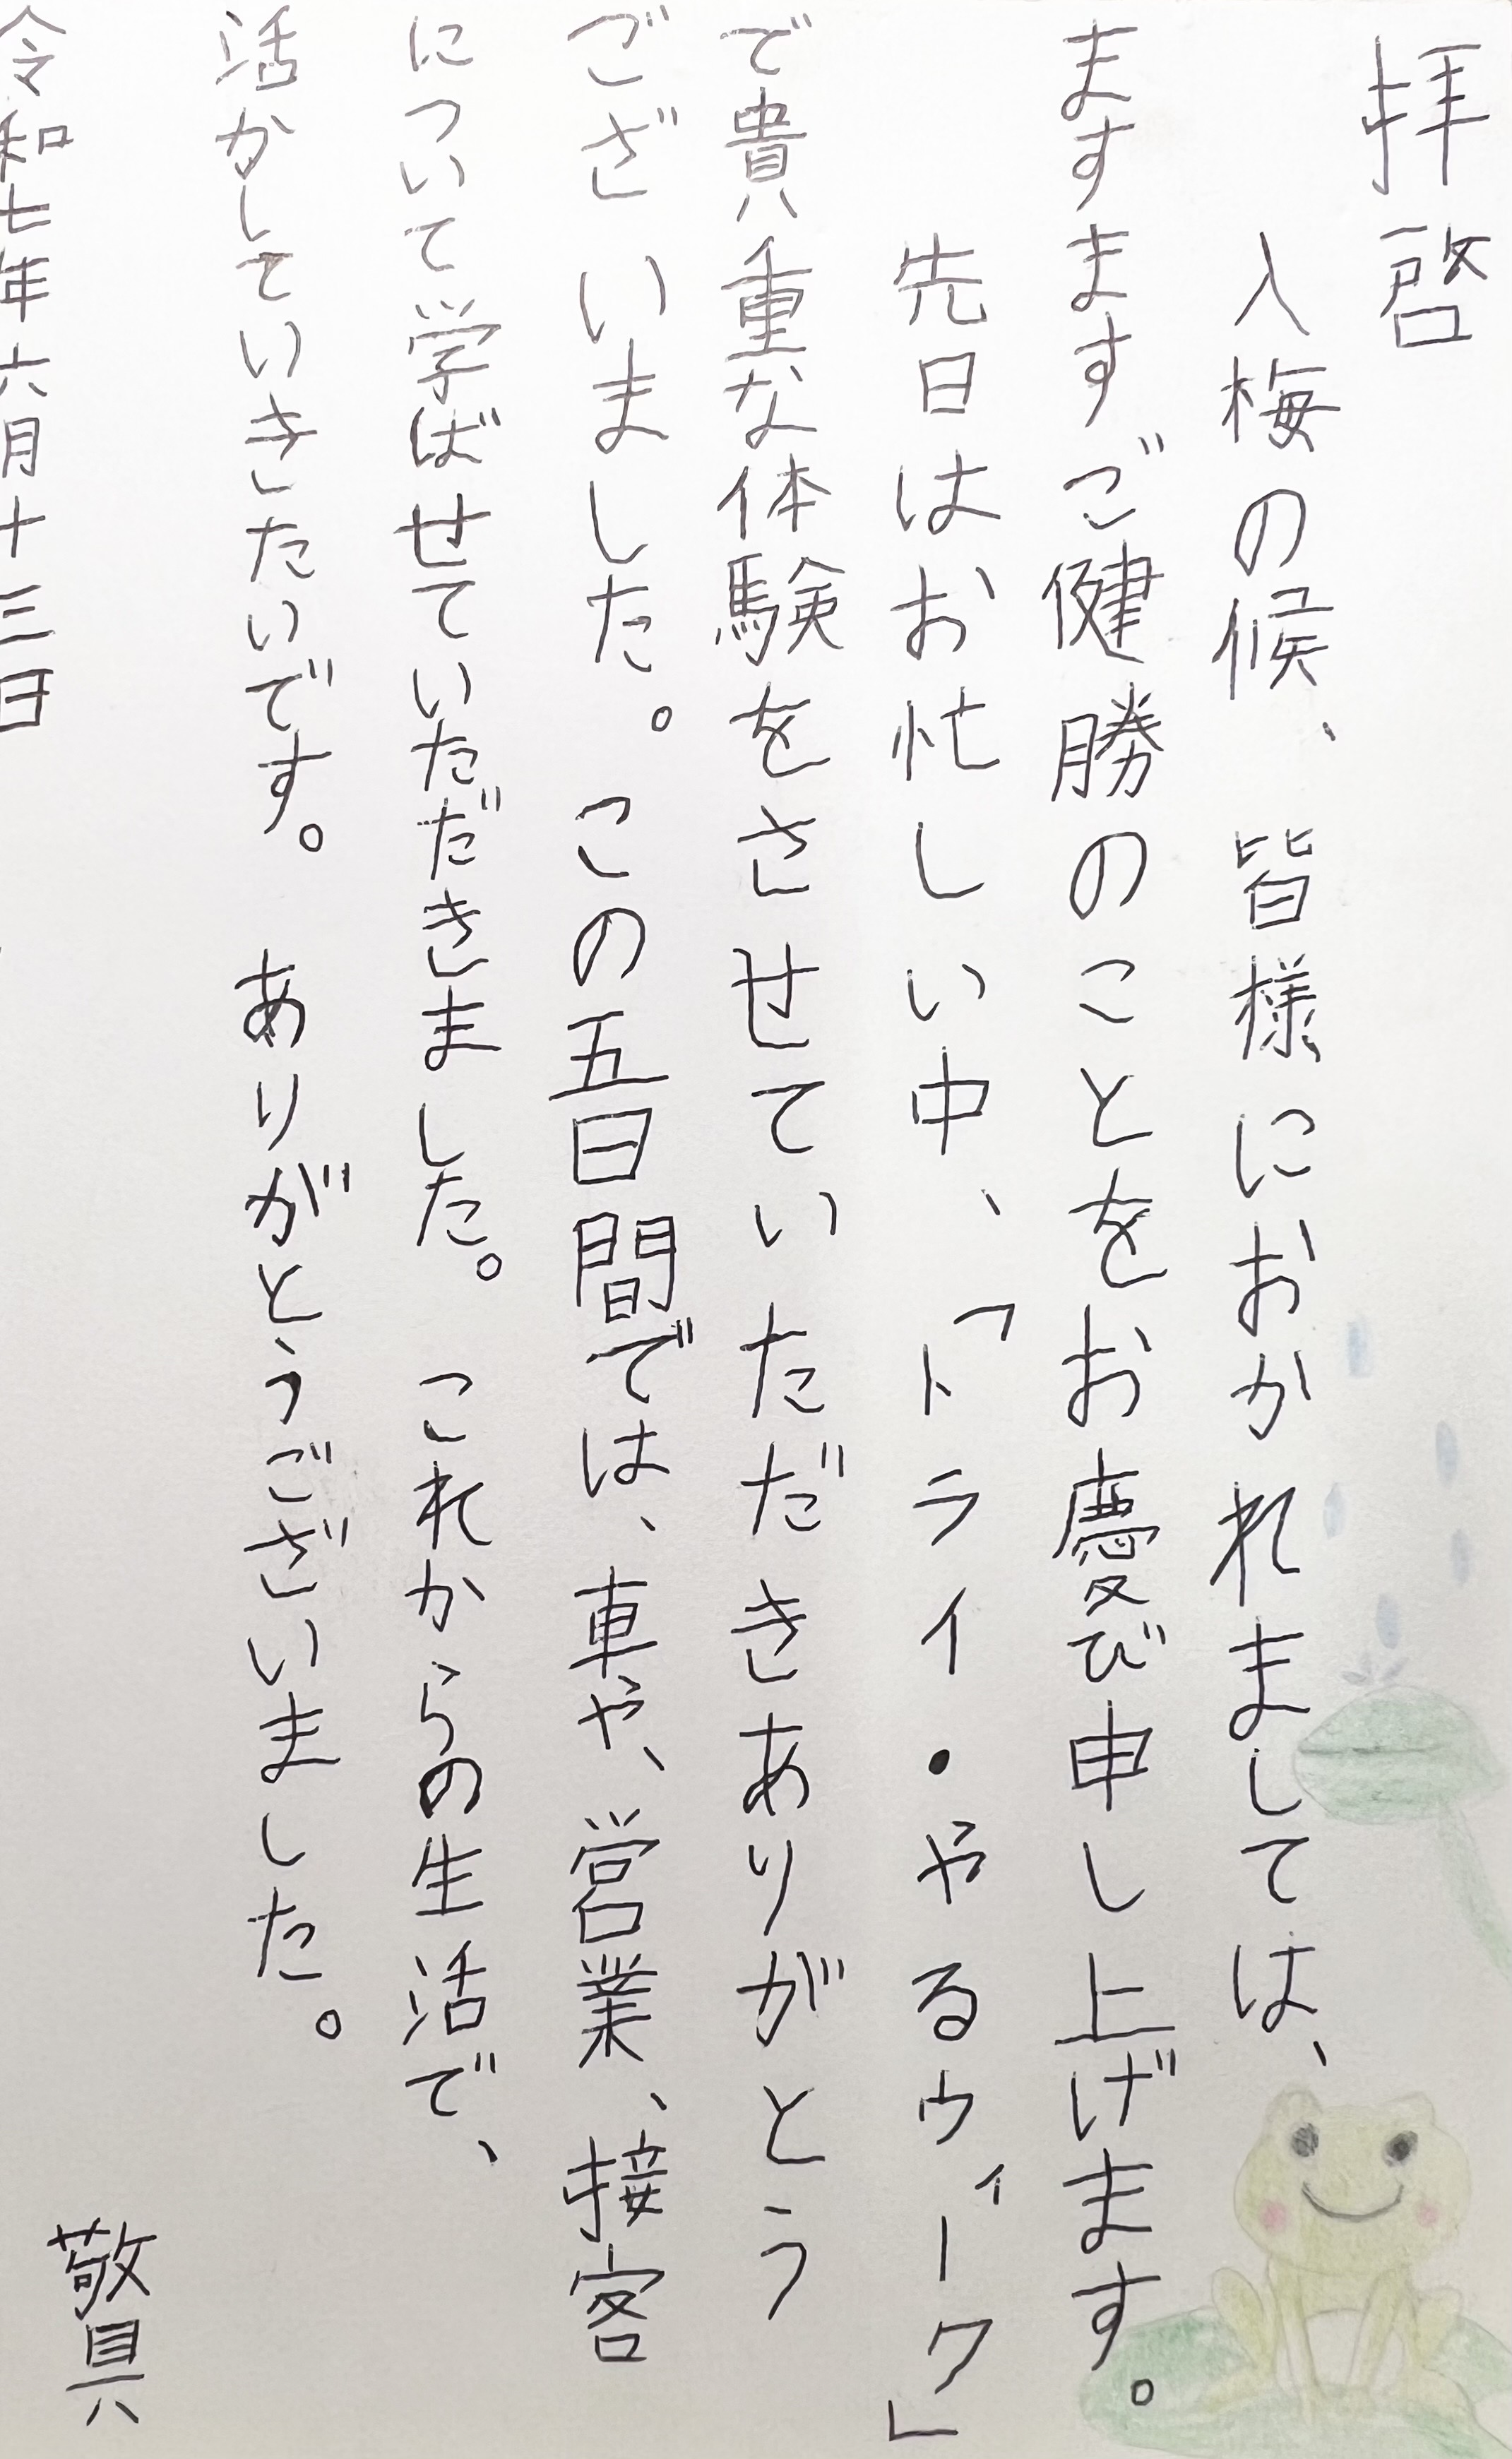 拝啓
入梅の候、皆様におかれましては、
ますますご健勝のことをお慶び申し上げます。
先日はお忙しい中、「トライ・やるウィーク」
で貴重な体験をさせていただきありがとう
ございました。この五日間では、車や、営業、接客
について学ばせていただきました。これからの生活で、
活かしていきたいです。ありがとうございました。
敬具
令和七年六月十三日